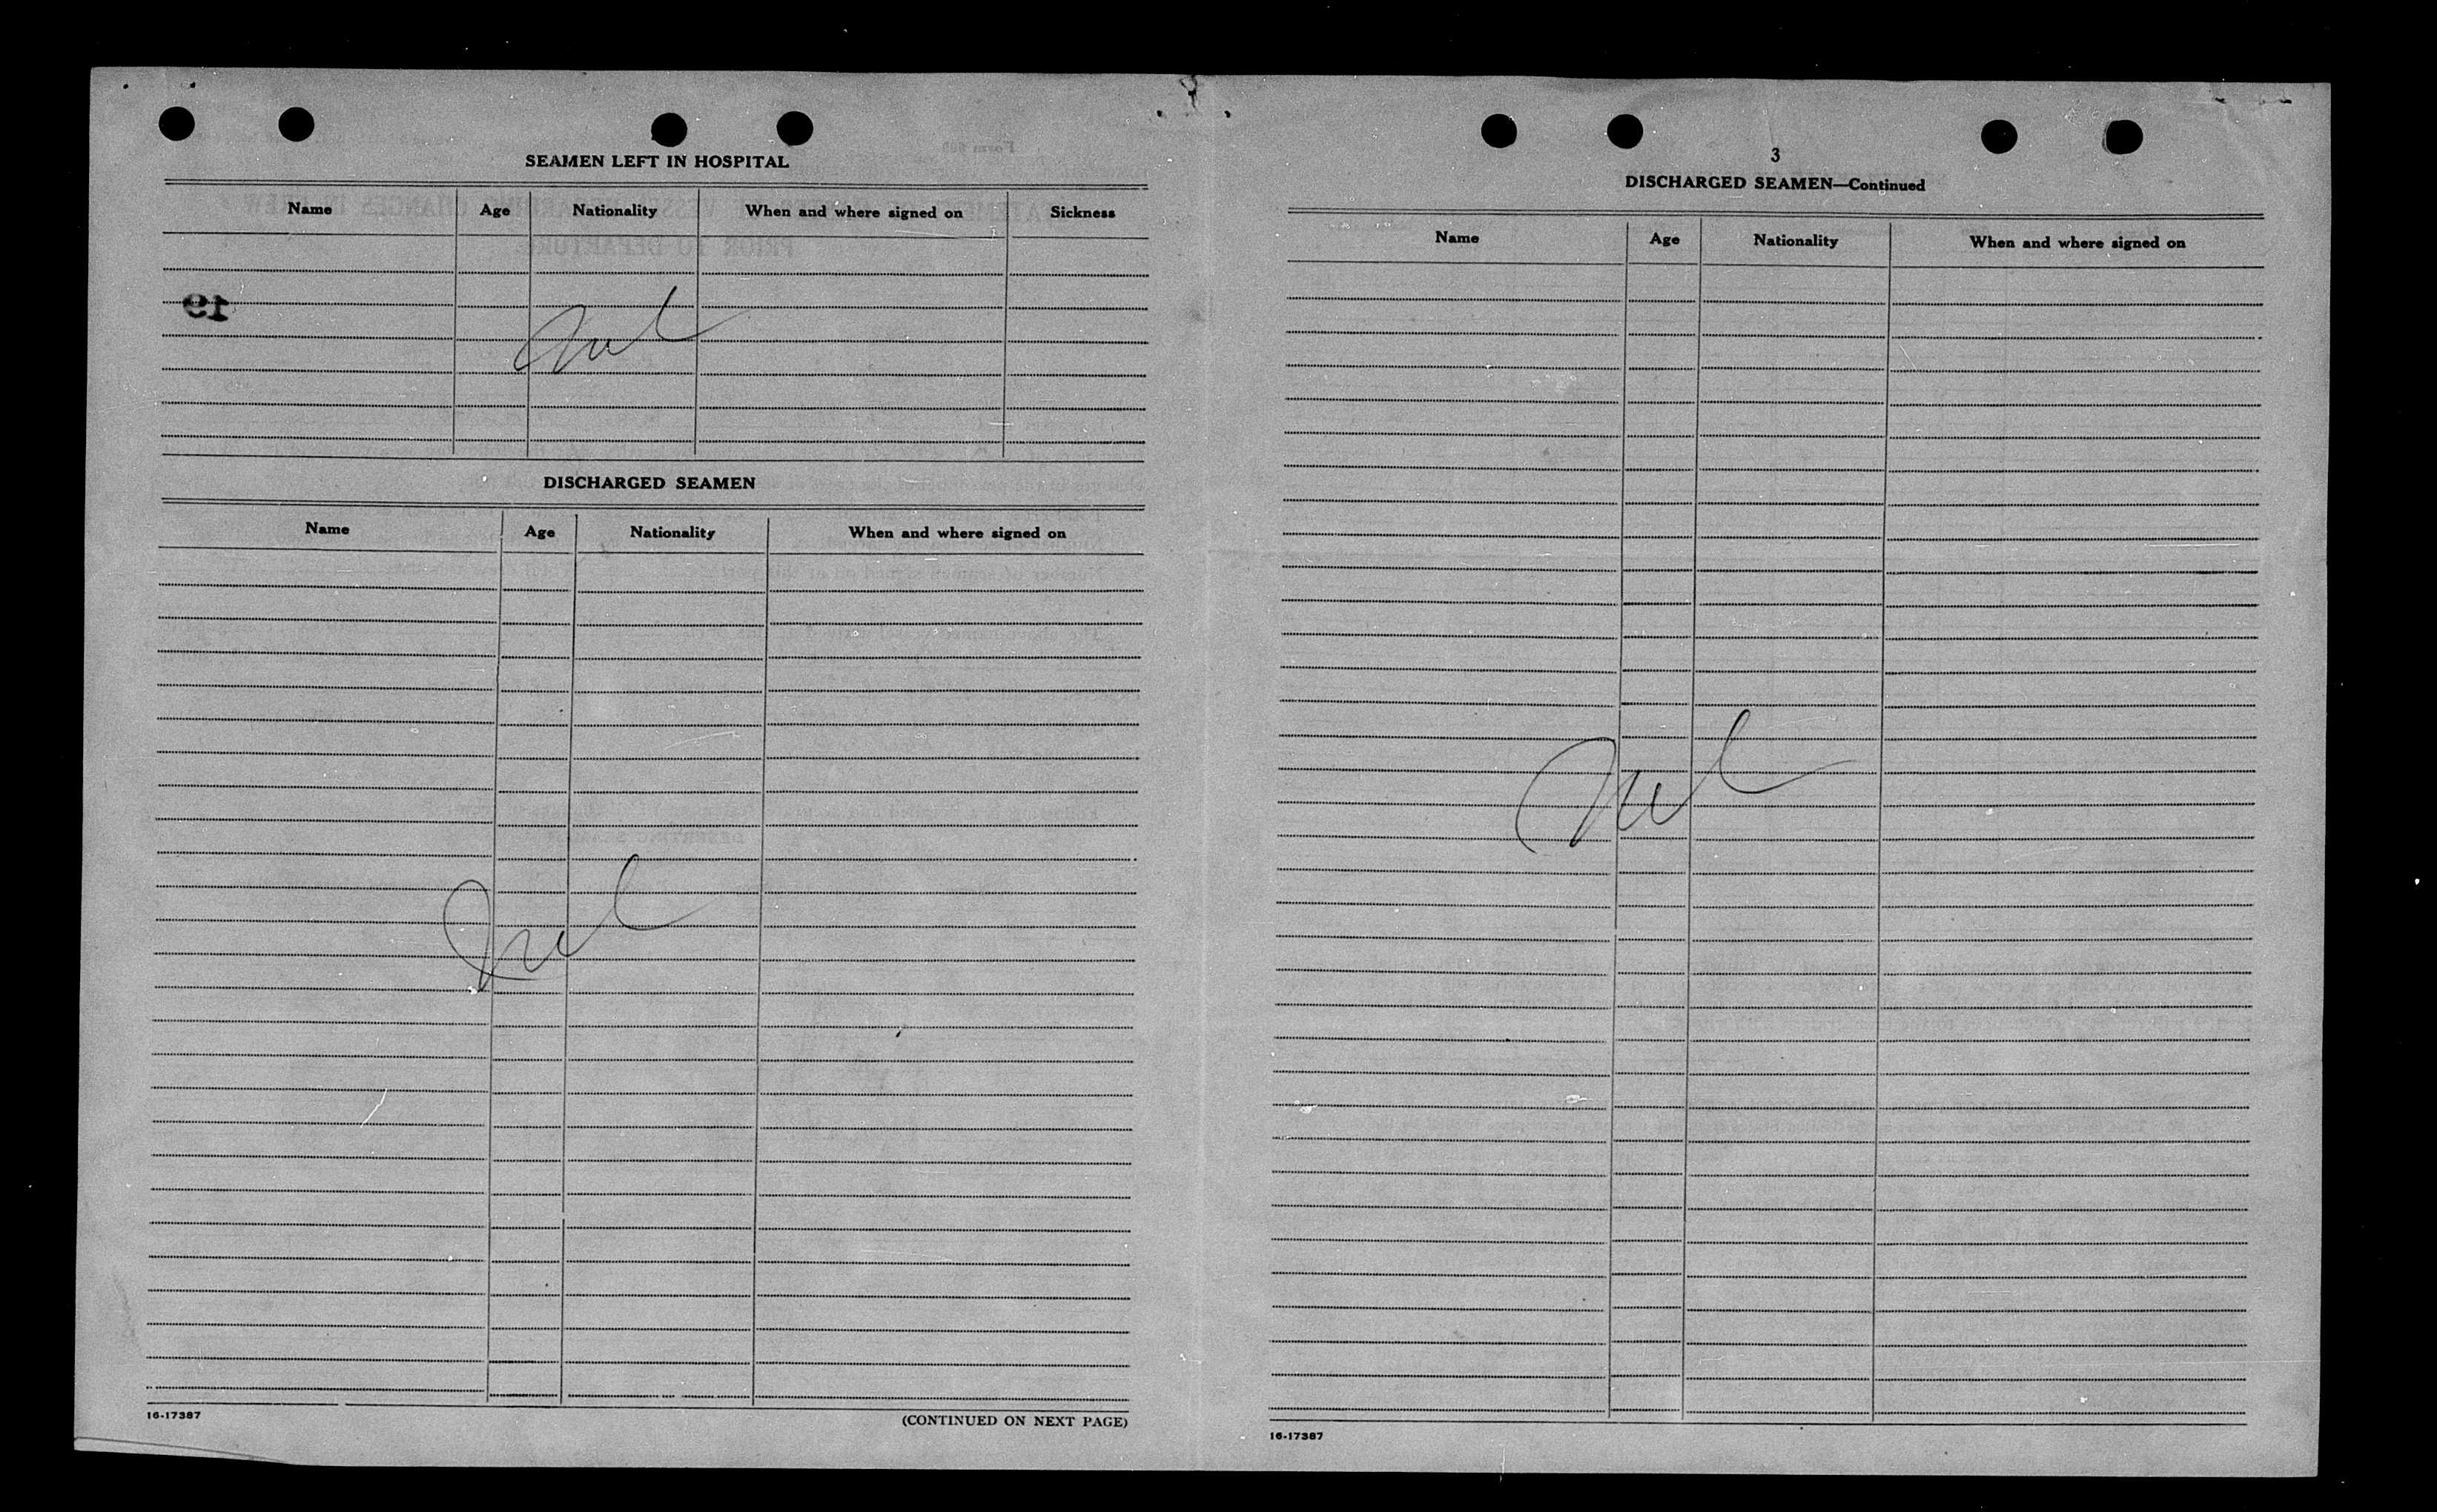 SEAMEN LEFT IN HOSPITAL
Name Age Nationality When and where signed on Sickness
19
Nil
DISCHARGED SEAMEN
Name Age Nationality When and where signed on
Nil
16-17387
(CONTINUED ON NEXT PAGE)
3
DISCHARGED SEAMEN—Continued
Name Age Nationality When and where signed on
Nil
16-17387